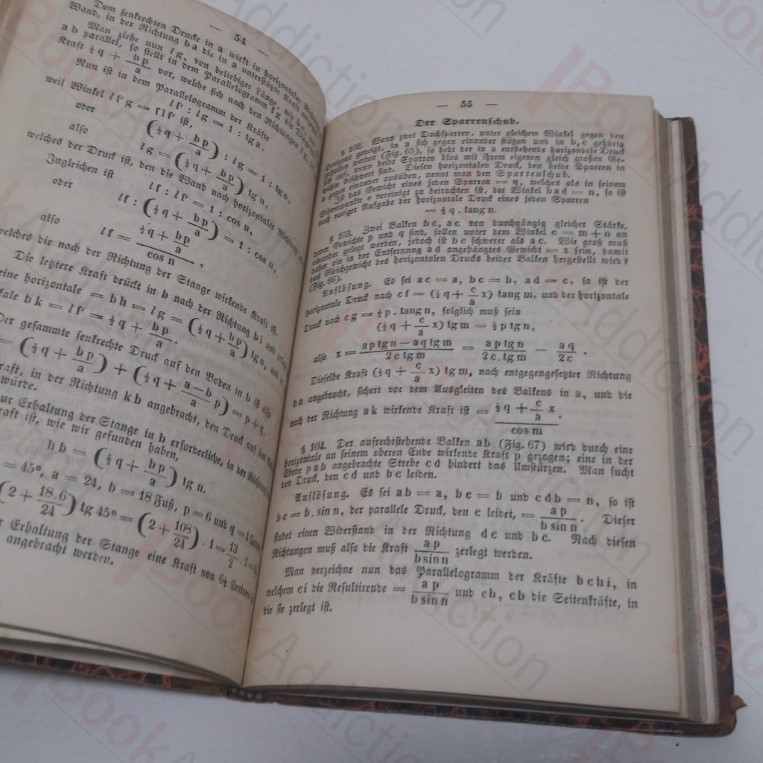 — 54 —
Dem senkrechten Drucke in a wirkt in horizontaler
Wand, in der Richtung b a die in a unterstützte Kraft
Man ziehe nun l g, von beliebiger Länge, mit b c,
a b parallel, so stellt in dem Parallelogramm l f' g
Kraft ½ q + bp/a vor, welche sich nach den Richtungen
Nun ist in dem Parallelogramm der Kräfte
l f' : l g = 1 : tg n.
weil Winkel
oder
(½ q + bp/a) : l g = 1 : tg n,
also
l g = (½ q + bp/a) tg n,
welches der Druck ist, den die Wand nach horizontaler Richtung
Zugleich ist
l f : l f' = 1 : cos n,
oder
l f : (½ q + bp/a) = 1 : cos n,
also
l f = (½ q + bp/a) / cos n,
welches die nach der Richtung der Stange wirkende Kraft ist.
Die letztere Kraft drückt in b nach der Richtung
eine horizontale = b h = l g = (½ q + bp/a) tg n, und
kale b k = l f' = ½ q + bp/a.
Der gesammte senkrechte Druck auf den Boden in b ist also
(½ q + bp/a) + (½ q + a — b/a p) = p + q,
raft, in der Richtung k b angebracht, den Druck auf den
würde.
ur Erhaltung der Stange in b erforderliche, in der Richtung
raft ist, wie wir gefunden haben,
h b = (½ q + bp/a) tg n.
= 45°, a = 24, b = 18 Fuß, p = 6 und q = 4
(2 + 18.6/24) tg 45° = (2 + 108/24) . 1 = 13/2 . 1
r Erhaltung der Stange eine Kraft von 6½ Centnern
angebracht werden.
— 55 —
Der Sparrenschub.
§ 102. Wenn zwei Dachsparren, unter gleichem Winkel gegen den
Horizont geneigt, in a sich gegen einander stützen und in b, c gehörig
gehalten werden (Fig. 65), so hebt der in a entstehende horizontale Druck
sich auf, wenn beide Sparren blos mit ihrem eigenen gleich großen Ge-
wicht beschwert sind. Diesen horizontalen Druck, den beide Sparren in
a gegen einander ausüben, nennt man den Sparrenschub.
Ist das Gewicht eines jeden Sparren = q, welches als in seinem
Schwerpunkte e vereinigt zu betrachten ist, der Winkel b a d = n, so ist
nach voriger Aufgabe der horizontale Druck eines jeden Sparren
= ½ q . tang n.
§ 103. Zwei Balken b c, a c von durchgängig gleicher Stärke,
dem Gewichte p und q sind, sollen unter dem Winkel c = m + n an
einander gelegt werden, jedoch ist b c schwerer als a c. Wie groß muß
daher ein in der Entfernung a d angehängtes Gewicht = x sein, damit
das Gleichgewicht des horizontalen Drucks beider Balken hergestellt wird?
(Fig. 66).
Auflösung. Es sei a c = a, b c = b, a d = c, so ist der
horizontale Druck nach c f = (½ q + c/a x) tang m, und der horizontale
Druck nach c g = ½ p . tang n, folglich muß sein
(½ q + c/a x) tg m = ½ p tg n,
also x = ap tg n — aq tg m / 2 c tg m = ap tg n / 2 c . tg m — aq / 2c .
Dieselbe Kraft (½ q + c/a x) tg m, nach entgegengesetzter Richtung
b a angebracht, sichert vor dem Ausgleiten des Balkens in a, und die
nach der Richtung a k wirkende Kraft ist = (½ q + c/a x) / cos m .
§ 104. Der aufrechtstehende Balken a b (Fig. 67) wird durch eine
horizontale an seinem oberen Ende wirkende Kraft p gezogen; eine in der
Ebene p a b angebrachte Strebe c d hindert das Umstürzen. Man sucht
den Druck, den c d und b c leiden.
Auflösung. Es sei a b = a, b c = b und c d b = n, so ist
b e = b . sin n, der parallele Druck, den c leidet, = ap / b sin n . Dieser
findet einen Widerstand in der Richtung d c und b c. Nach diesen
Richtungen muß also die Kraft ap / b sin n zerlegt werden.
Man verzeichne nun das Parallelogramm der Kräfte b c h i, in
welchem c i die Resultirende = ap / b sin n und c h, c b die Seitenkräfte, in
die sie zerlegt ist.
Book Addiction